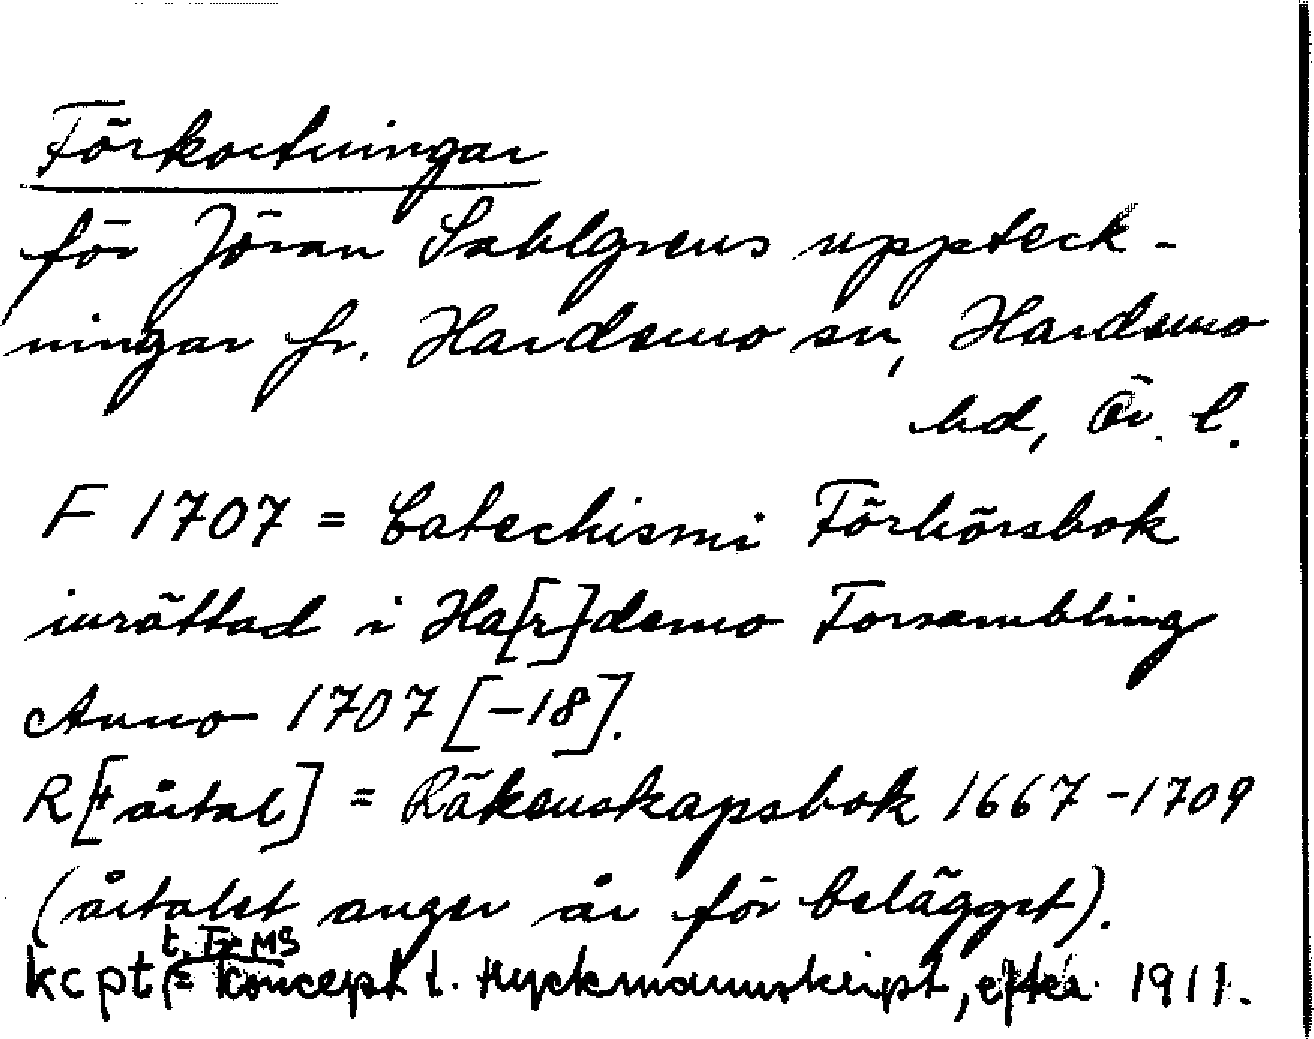 Förkortningar
för Jöran Sahlgrens uppteck-
ningar fr. Hardemo sn, Hardemo
hd, Ör. l.
F 1707 = Catechismi Förhörsbok
inrättad i Ha[r]demo Forsambling
Anno 1707 [-18].
R[+ årtal] = Räkenskapsbok 1667-1709
(årtalet anger år för belägget).
t. Tr MS
kcpt = koncept t. tryckmanuskript, efter 1911.